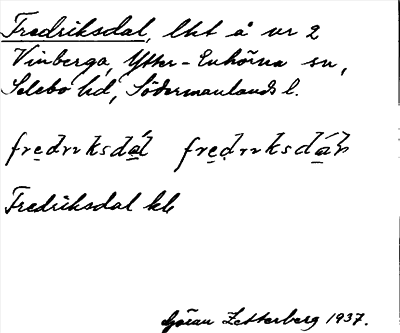 Fredriksdal, lht å nr 2
Vinberga, Ytter-Enhörna sn,
Selebo hd, Södermanlands l.
Fredriksdal kb
Göran Zetterberg 1937.